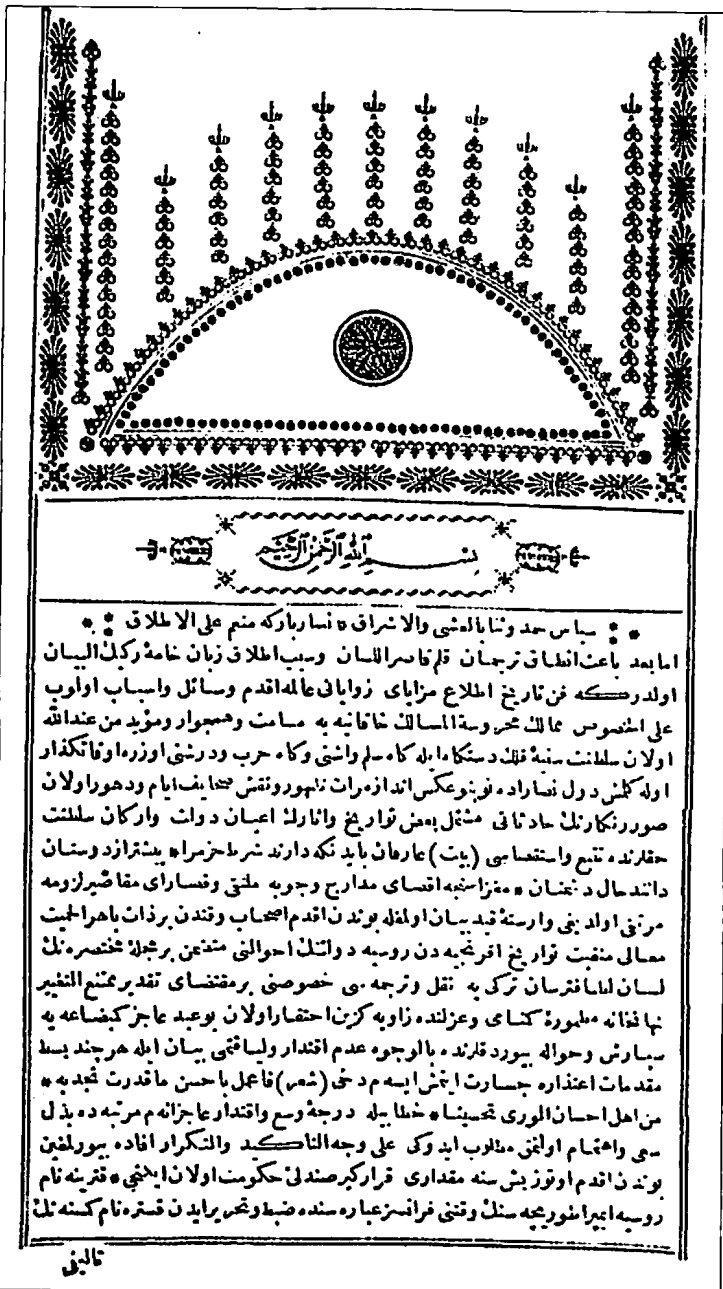 بسم الله الرحمن الرحيم
سپاس حمد وثنا بالعشى والاشراق * نسار باركه منعم على الاطلاق *
اما بعد باعث انطاق ترجمان قلم قاصر اللسان وسبب اطلاق زبان خامهٔ ركيك البيان
اولدركه فن تاريخ اطلاع مزاياى زواياى عالمه اقدم وسائل واسباب اولوب
على الخصوص ممالك محروسة المسالك خاقانيه يه مسامت وهمجوار ومؤيد من عند الله
اولان سلطنت سنيهٔ فلك دستكاه ايله كاه سلم واشتى وكاه حرب ودرشتى اوزره اوقاتكذار
اوله كلمش دول نصاراده نوبنو عكس انداز مرات ظهور ونقش صحايف ايام ودهور اولان
صور رنكارنك حادثاتى مشتمل بعض تواريخ واثارك اعيان دولت واركان سلطنت
حقلرنده تتبع واستقصاسى (بيت) عارفان بايد نكه دارند شرط حزم را * پيشتر از دوستان
دانند حال دشمنان * مغزاسنجه اقصاى مدارج وجوبه ملتقى وقصاراى مقاصير لزومه
مرتقى اولديغى وارستهٔ قيد بيان اولمغله بوندن اقدم اصحاب وقتدن بر ذات باهر الحميت
معالى منقبت تواريخ افرنجيه دن روسيه دولتنك احوالنى متضمن بر مجلهٔ مختصره نك
لسان لطافترسان تركى يه نقل وترجمه سى خصوصنى بر مقتضاى تقدير ممتنع التغيير
نهانخانه مطمورهٔ كمنامى وعزلتده زاويه كزين احتقار اولان بو عبد عاجز كم بضاعه يه
سپارش وحواله بيوردقلرنده بالوجوه عدم اقتدار ولياقتمى بيان ايله هر چند بسط
مقدمات اعتذاره جسارت ايتمش ايسه م دخى (شعر) فاعمل باحسن ما قدرت تجد به *
من اهل احسان الورى تحسينا * خطابيله درجهٔ وسع واقتدار عاجزانه م مرتبه ده بذل
سعى واهتمام اولنمق مطلوب ايدوكى على وجه التأكيد والتكرار افاده بيورلمغين
بوندن اقدم اوتوز بش سنه مقدارى قراركير صندلئ حكومت اولان ايكنجى * قترينه نام
روسيه ايپراطوريچه سنك وقتنى فرانسز عباره سنده ضبط وتحرير ايدن قستره نام كسنه نك
تاليفى